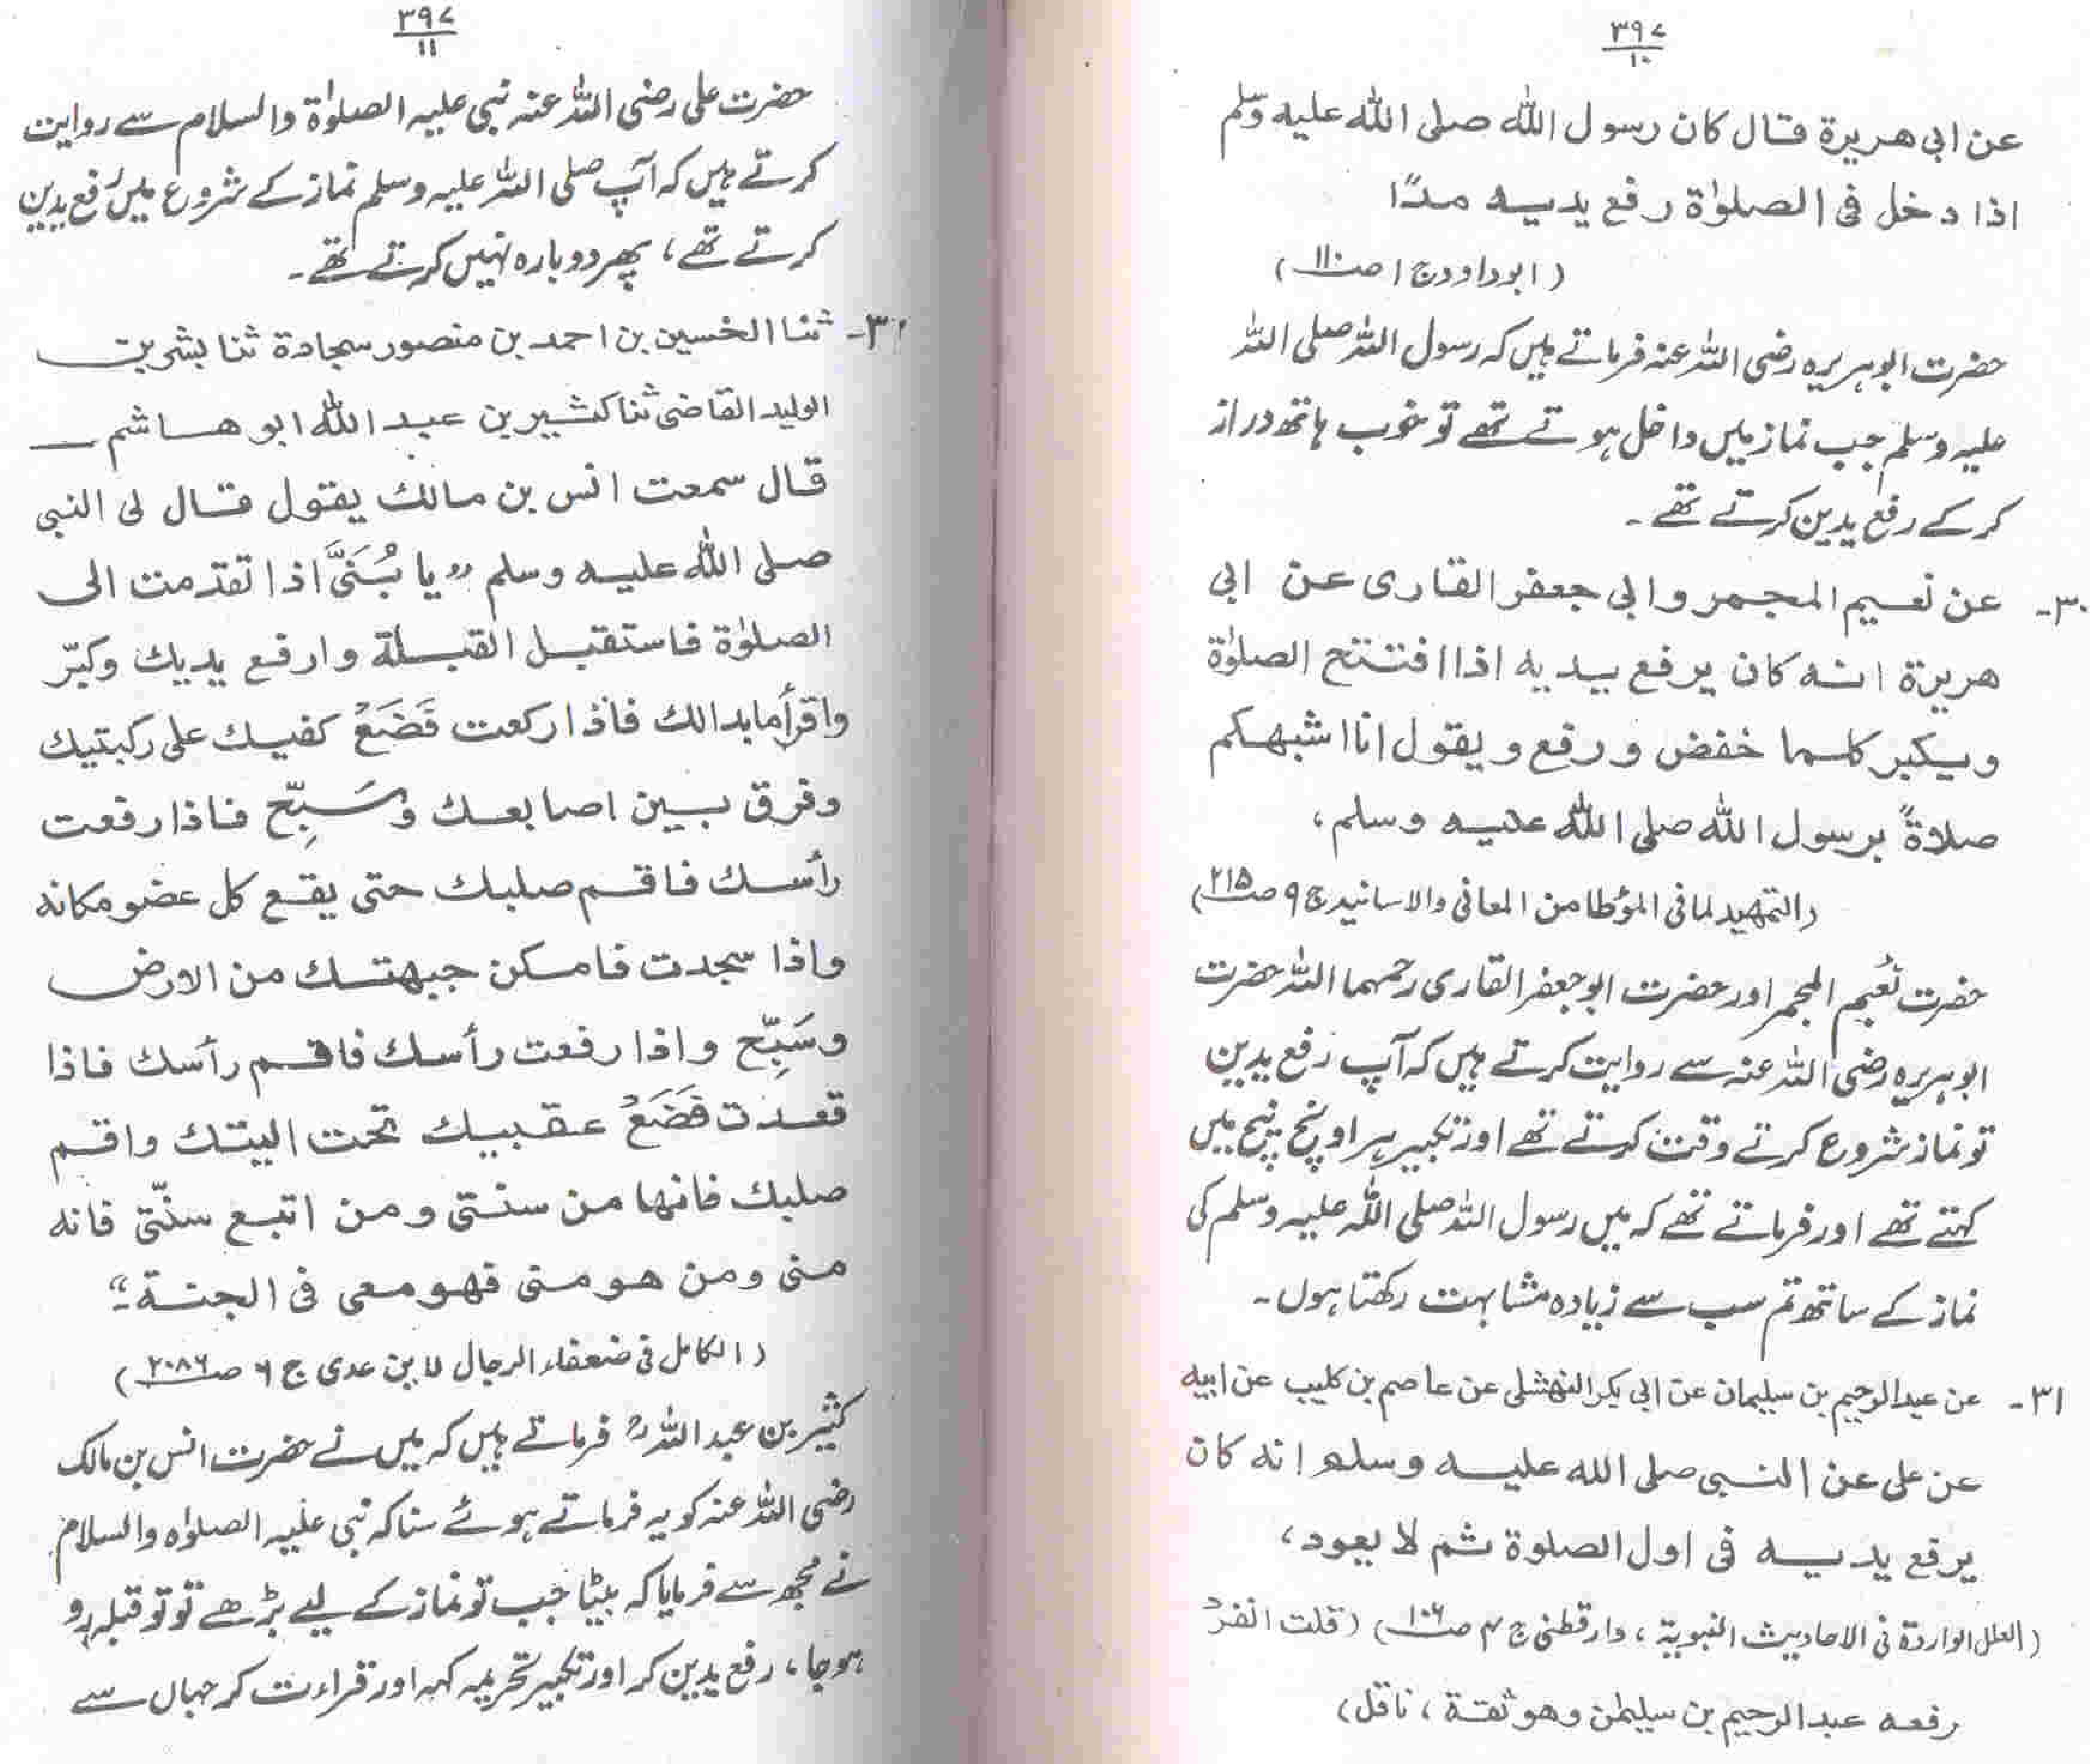 ۳۹۷
۱۰
عن ابی ھریرۃ قال کان رسول اللہ صلی اللہ علیہ وسلم
اذا دخل فی الصلوٰۃ رفع یدیہ مدًا
(ابوداود ج ۱ ص۱۱۰)
حضرت ابو ہریرہ رضی اللہ عنہ فرماتے ہیں کہ رسول اللہ صلی اللہ
علیہ وسلم جب نماز میں داخل ہوتے تھے تو خوب ہاتھ دراز
کرکے رفع یدین کرتے تھے۔
۳۰۔ عن نعیم المجمر وابی جعفر القاری عن ابی
ھریرۃ انہ کان یرفع یدیہ اذا افتتح الصلوٰۃ
ویکبر کلما خفض و رفع و یقول انا اشبھکم
صلاۃً برسول اللہ صلی اللہ علیہ وسلم،
(التمہید لما فی المؤطا من المعانی والاسانید ج ۹ ص۲۱۵)
حضرت نُعیم المجمر اور حضرت ابو جعفر القاری رحمہما اللہ حضرت
ابو ہریرہ رضی اللہ عنہ سے روایت کرتے ہیں کہ آپ رفع یدین
تو نماز شروع کرتے وقت کرتے تھے اور تکبیر ہر اونچ نیچ میں
کہتے تھے اور فرماتے تھے کہ میں رسول اللہ صلی اللہ علیہ وسلم کی
نماز کے ساتھ تم سب سے زیادہ مشابہت رکھتا ہوں۔
۳۱۔ عن عبدالرحیم بن سلیمان عن ابی بکر النھشلی عن عاصم بن کلیب عن ابیہ
عن علی عن النبی صلی اللہ علیہ وسلم انہ کان
یرفع یدیہ فی اول الصلوۃ ثم لا یعود،
(العلل الواردۃ فی الاحادیث النبویۃ، دارقطنی ج ۴ ص۱۰۶) (قلت انفرد
رفعہ عبدالرحیم بن سلیمٰن وھو ثقۃ، ناقل)
۳۹۷
۱۱
حضرت علی رضی اللہ عنہ نبی علیہ الصلوٰۃ والسلام سے روایت
کرتے ہیں کہ آپ صلی اللہ علیہ وسلم نماز کے شروع میں رفع یدین
کرتے تھے، پھر دوبارہ نہیں کرتے تھے۔
ثنا الحسین بن احمد بن منصور سجادۃ ثنا بشر بن
الولید القاضی ثنا کثیر بن عبد اللہ ابو ھاشم
قال سمعت انس بن مالک یقول قال لی النبی
صلی اللہ علیہ وسلم "یا بُنَیَّ اذا تقدمت الی
الصلوٰۃ فاستقبل القبلۃ وارفع یدیك وکبّر
واقرأ ما بدالك فاذا رکعت فَضَعْ کفیك علی رکبتیك
وفرق بین اصابعك وسَبِّح فاذا رفعت
رأسك فاقم صلبك حتی یقع کل عضو مکانہ
واذا سجدت فامکن جبھتك من الارض
وسَبِّح واذا رفعت رأسك فاقم رأسك فاذا
قعدت فَضَعْ عقبیك تحت الیتك واقم
صلبك فانھا من سنتی ومن اتبع سنّتی فانہ
منی ومن ھو منی فھو معی فی الجنۃ۔"
(الکامل فی ضعفاء الرجال لابن عدی ج ۶ ص۲۰۸۶)
کثیر بن عبداللہؒ فرماتے ہیں کہ میں نے حضرت انس بن مالک
رضی اللہ عنہ کو یہ فرماتے ہوئے سنا کہ نبی علیہ الصلوٰہ والسلام
نے مجھ سے فرمایا کہ بیٹا جب تو نماز کے لیے بڑھے تو تو قبلہ رو
ہو جا، رفع یدین کر اور تکبیر تحریمہ کہہ اور قراءت کر جہاں سے